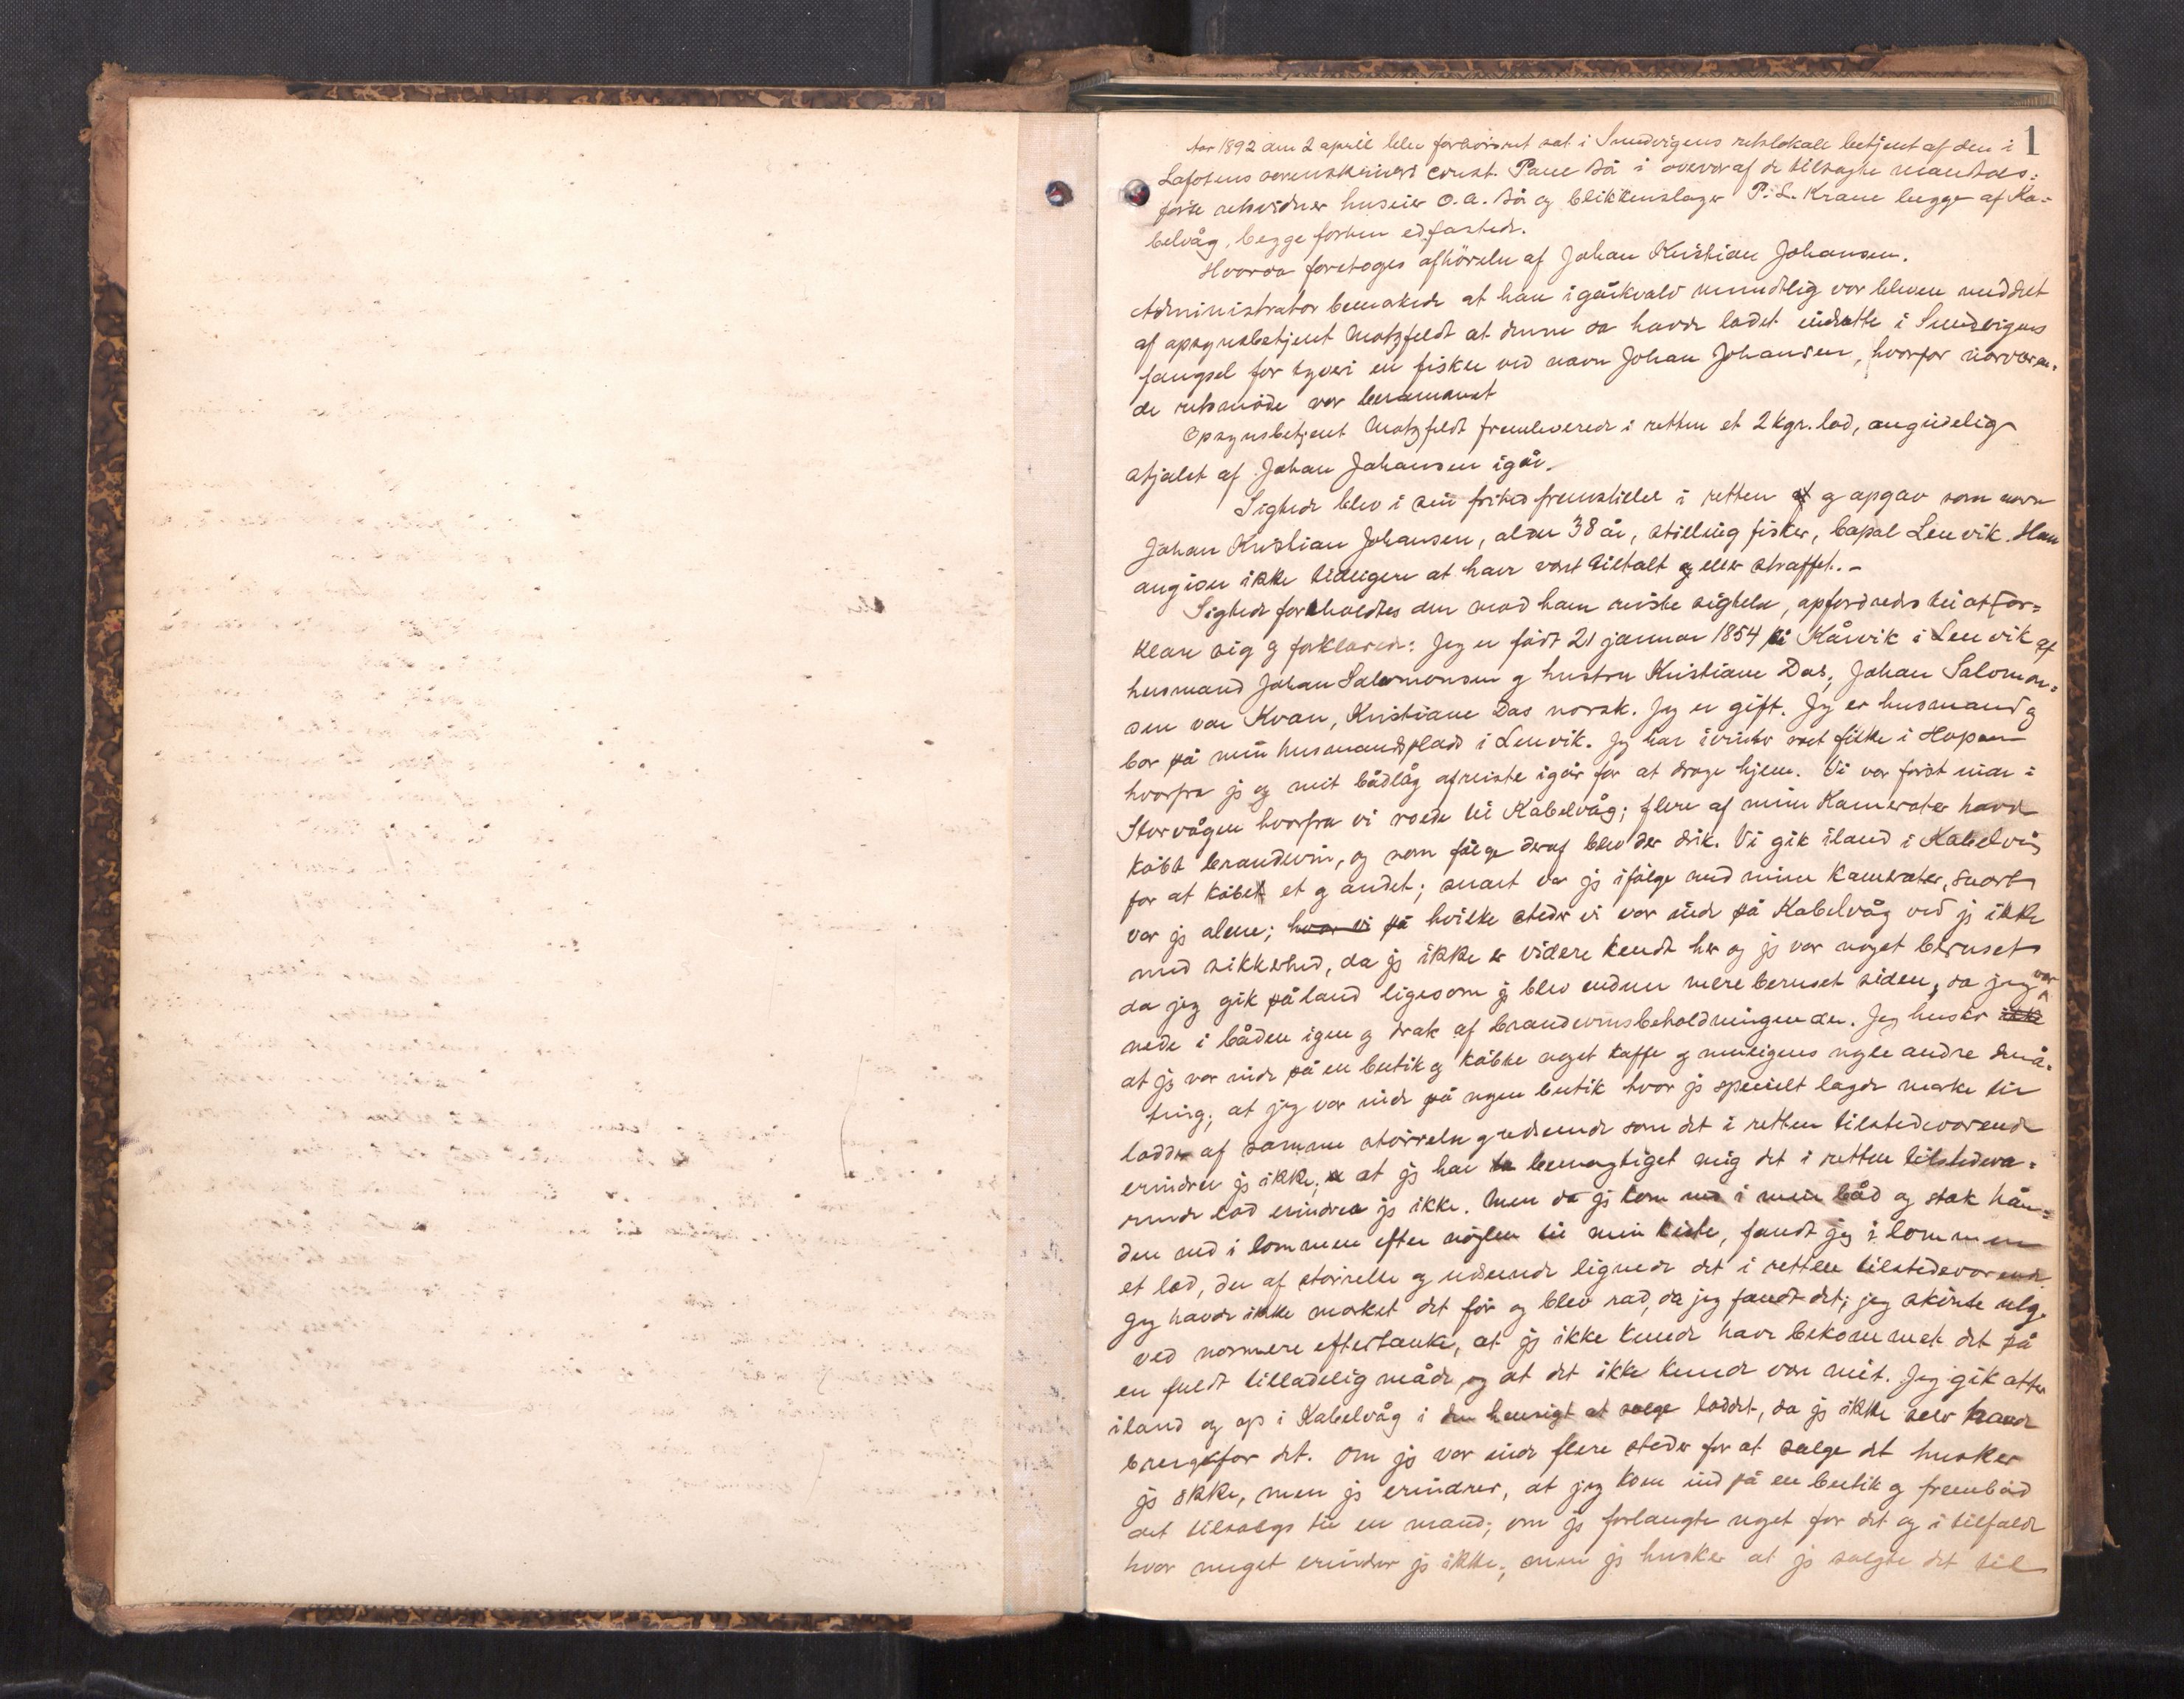 1
Aar 1892 den 2 april blev forhörsret sat i Svendvigens retslokale betjent af den i
Lofotens sorenskriveri const. Paul Bö i overvær af de tilsagte mandtals-
förte retsvidner huseier O. A. Bö og blikkenslager P. L. Krane begge af Ka-
belvåg, begge forhen edfæstede.
Hvorda foretoges afhörelse af Johan Kristian Johansen.
Administrator bemærkede at han igårkvæld mundtlig var bleven meddelt
af opsynsbetjent Motzfeldt at denne da havde ladet indsætte i Svendvigens
fængsel for tyveri en fisker ved navn Johan Johansen, hvorfor nærværen-
de retsmöde var berammet
Opsynsbetjent Motzfeldt fremleverede i retten et 2 kgr. lod, angivelig
stjålet af Johan Johansen igår.
Sigtede blev i sin frihed fremstillet i retten og opgav som navn
Johan Kristian Johansen, alder 38 år, stilling fisker, bopæl Lenvik. Han
angiver ikke tidligere at have vært tiltalt eller straffet. -
Sigtede foreholdtes den mod ham reiste sigtelse, opfordredes til at for-
klare sig og forklarede: Jeg er födt 21 januar 1854 på Kårvik i Lenvik af
husmand Johan Salomonsen og hustru Kristiane Das; Johan Salomon-
sen var Kvæn, Kristiane Das norsk. Jeg er gift. Jeg er husmand og
bor på min husmandsplads i Lenvik. Jeg har ivinter rodt fiske i Hopen
hvorfra jeg og mit bådlåg afreiste igår for at drage hjem. Vi var först inde i
Storvågen hvorfra vi roede til Kabelvåg; flere af mine Kamerater havde
köbt brændevin, og som fölge deraf blev der drik. Vi gik iland i Kabelvåg
for at köbe et og andet; snart var jeg ifölge med mine Kamerater, snart
var jeg alene; hvor vi på hvilke steder vi var inde på Kabelvåg ved jeg ikke
med sikkerhed, da jeg ikke er videre kendt her og jeg var noget beruset
da jeg gik på land ligesom jeg blev endnu mere beruset siden, da jeg var
nede i båden igen og drak af brændevinsbeholdningen der. Jeg husker ikke
at jeg var inde på en butik og köbte noget kaffe og muligens nogle andre små-
ting; at jeg var inde på nogen butik hvor jeg specielt lagde mærke til
lodder af samme störrelse og udseende som det i retten tilstedeværende
erindrer jeg ikke; at jeg har bemægtiget mig det i retten tilstedevæ-
rende lod erindrer jeg ikke. Men da jeg kom ned i min båd og stak hån-
den ned i lommen efter nöglen til min kiste, fandt jeg i lommen
et lod, der af störrelse og udseende lignede det i retten tilstedeværende.
Jeg havde ikke mærket det för og blev ræd, da jeg fandt det; jeg skönte nlg.
ved nærmere eftertanke, at jeg ikke kunde have bekommet det på
en fuldt tilladelig måde, og at det ikke kunde være mit. Jeg gik atter
iland og op i Kabelvåg i den hensigt at sælge loddet, da jeg ikke selv havde
brug for det. Om jeg var inde flere steder for at sælge det husker
jeg ikke, men jeg erindrer, at jeg kom ind på en butik og fremböd
det tilsalgs til en mand; om jeg forlangte noget for det og i tilfælde
hvor meget erindrer jeg ikke; men jeg husker at jeg solgte det til